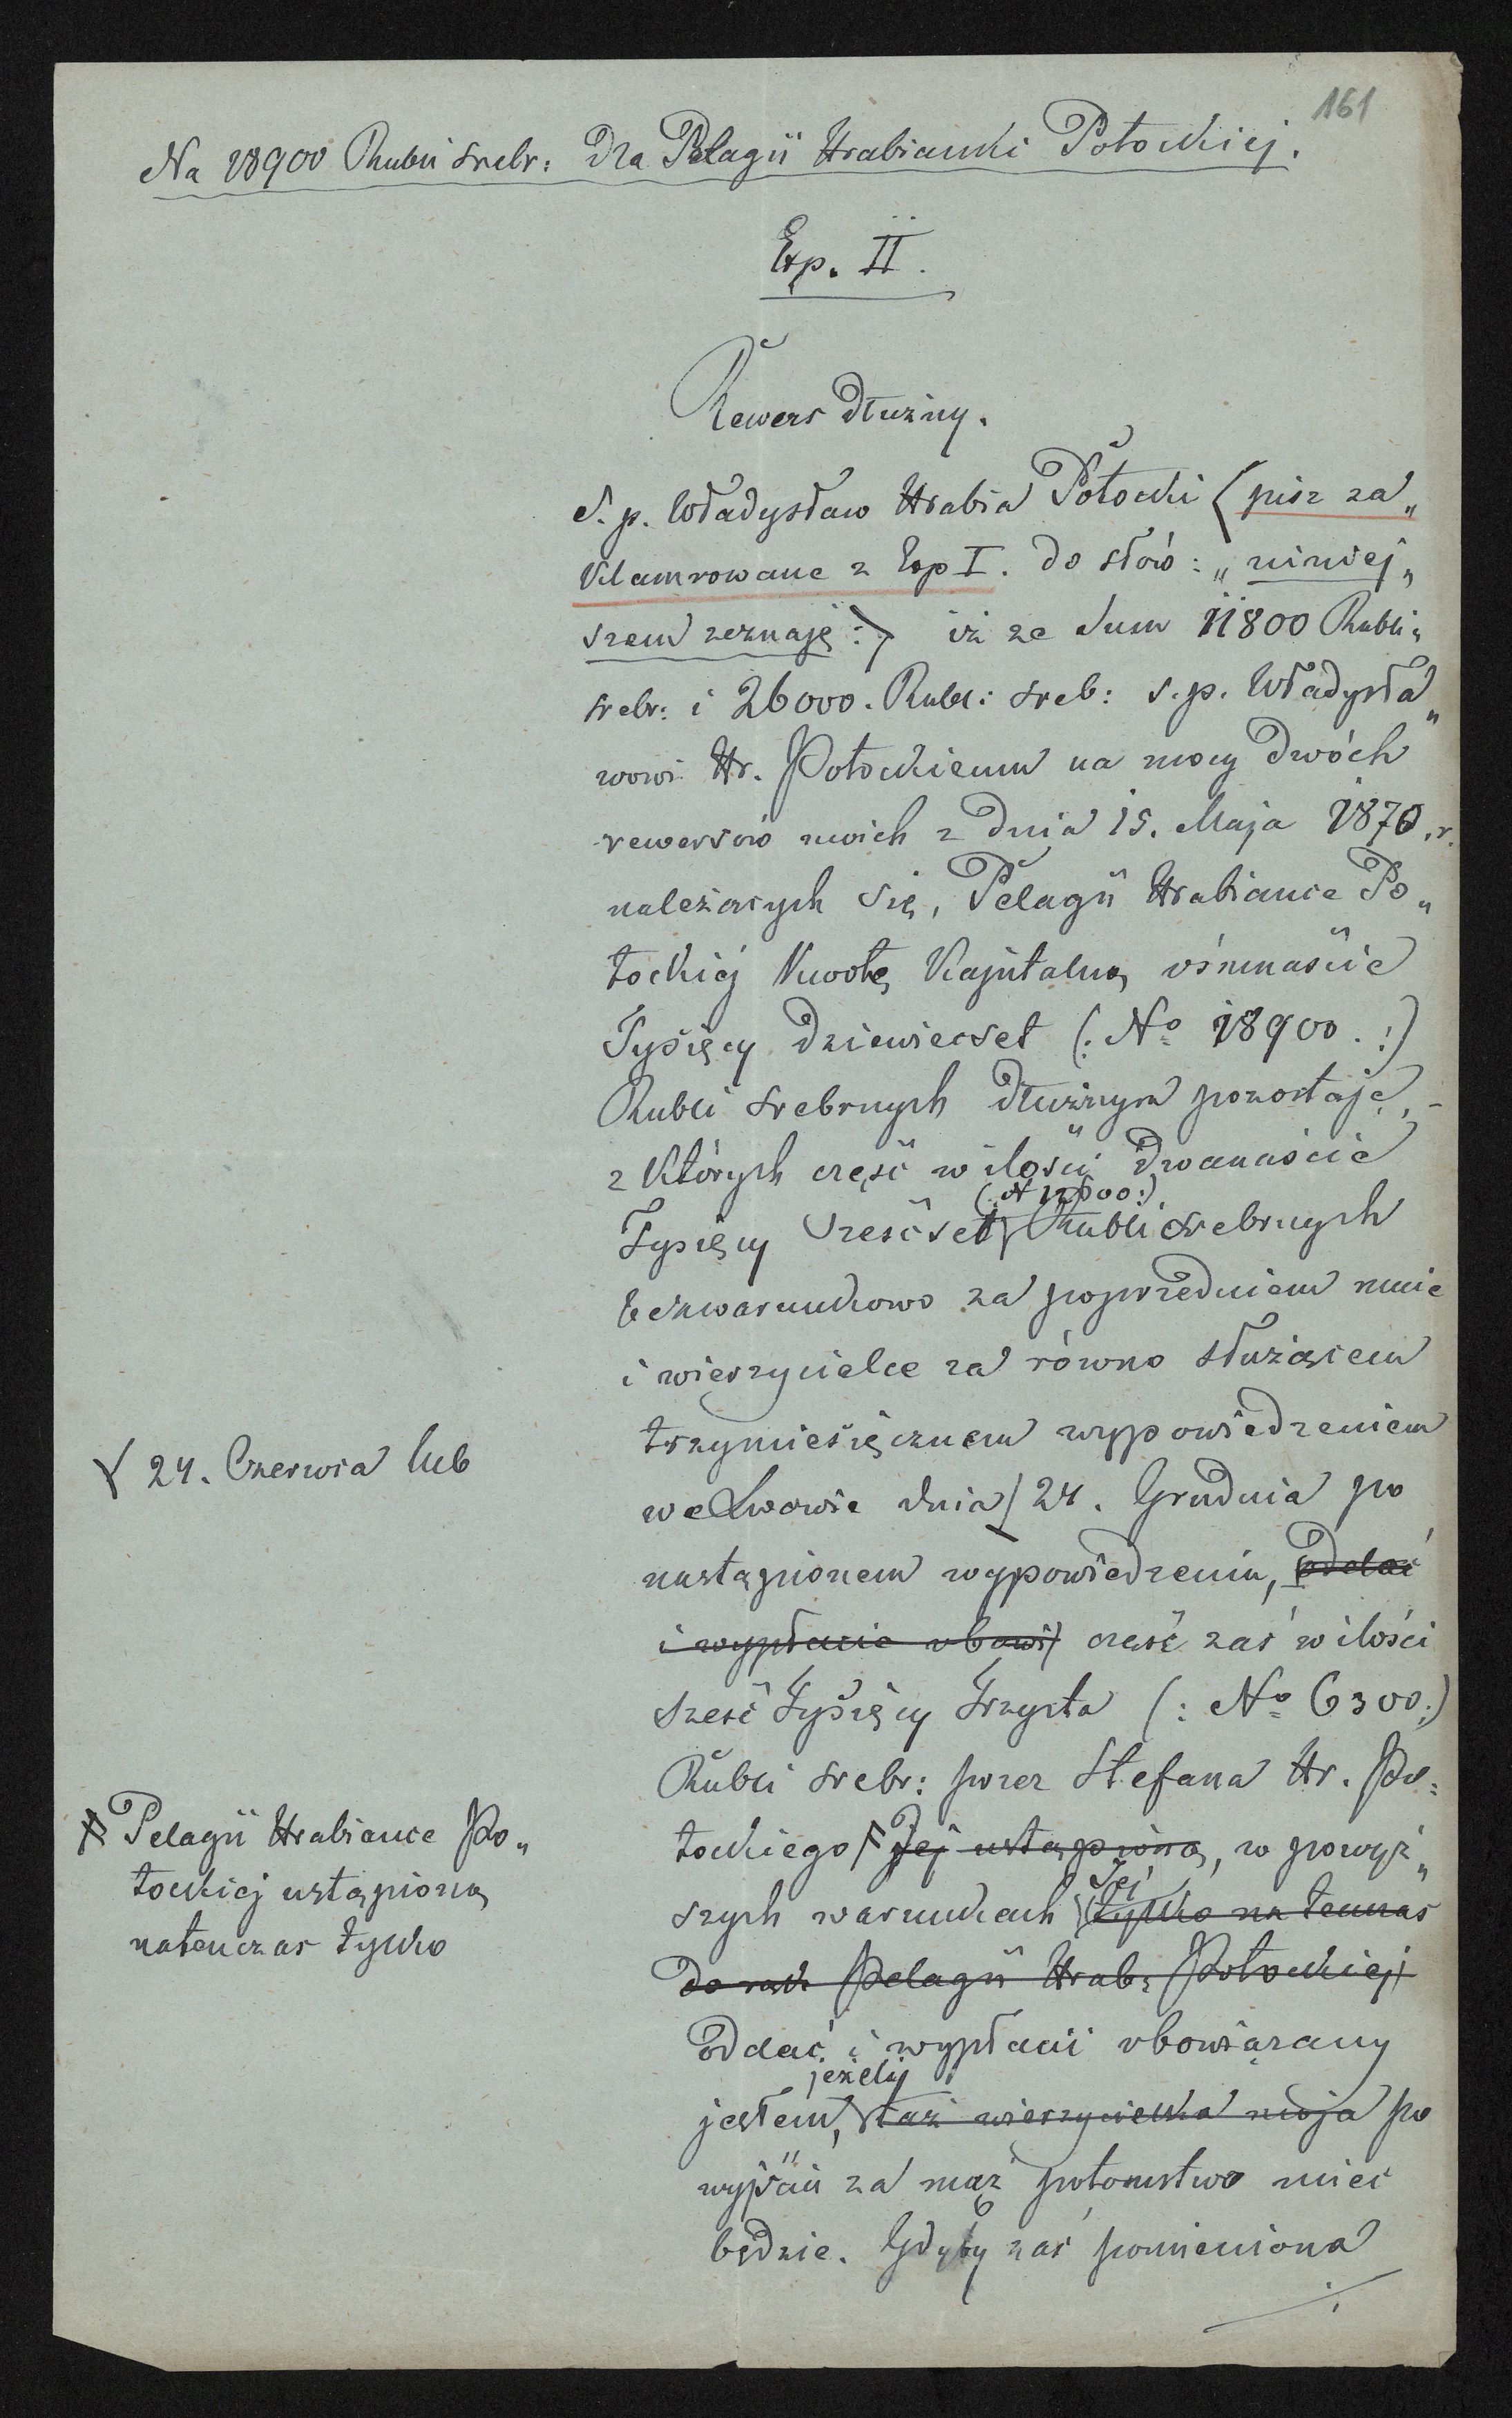 161
Na 18900 Rubli srebr: Dla Pelagii Hrabianki Potockiej.
Exp. II.
Rewers dłużny.
S. p. Władysław Hrabia Potocki (pisz za„
klamrowane z Exp I. do słów: „niniej„
szem zeznaję:) iż ze Sum 11800 Rubli„
srebr: i 26000. Rubl: sreb: s. p. Władysła„
wowi Hr. Potockiemu na mocy dwóch
rewersów moich z dnia 15. Maja 1870.r.
należących się, Pelagii Hrabiance Po„
tockiej kwotę kapitalną ośmnaście
Tysięcy dziewiećset (: No 18900. :)
Rubli srebrnych dłużnym pozostaję, -
z których część w ilości dwanaście
(: N 12600:)
Tysięcy sześćset Rubli srebrnych
bezwarunkowo za poprzedniem mnie
i wierzycielce za równo służącem
trzymiesięcznem wypowiedzeniem
24. Czerwca lub
we Lwowie dnia 24. Grudnia po
nastąpionem wypowiedzeniu, oddać
i wypłacić obowi część zaś w ilości
sześć Tysięcy Trzysta (: No 6300:)
Rubli srebr: przez Stefana Hr. Po:
Pelagii Hrabiance Po„
tockiej ustąpioną
natenczas tylko
tockiego Jej ustąpioną, w powyż„
Jej
szych warunkach tylko na tenczas
do rąk Pelagii Hrab: Potockiej
oddać i wypłacić obowiązany
jeżeli
jestem, taż wierzycielka moja po
wyjściu za mąż potomstwo mieć
będzie. Gdyby zaś pomieniona
./.